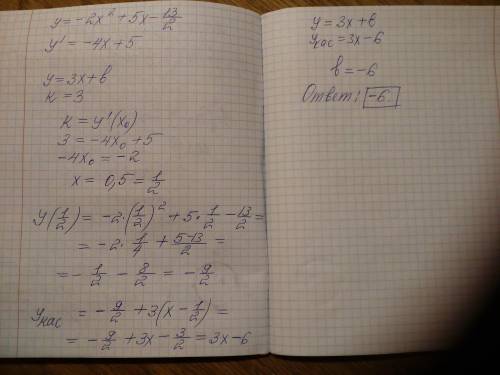 y = -2x² + 5x - 13/2
y' = -4x + 5
y = 3x + в
к = 3
к = y'(x₀)
3 = -4x₀ + 5
-4x₀ = -2
x = 0,5 = 1/2
y(1/2) = -2·(1/2)² + 5·1/2 - 13/2 =
= -2·1/4 + (5-13)/2 =
= -1/2 - 8/2 = -9/2
yкас = -9/2 + 3(x - 1/2) =
= -9/2 + 3x - 3/2 = 3x - 6
y = 3x + в
yкас = 3x - 6
в = -6
Ответ: -6